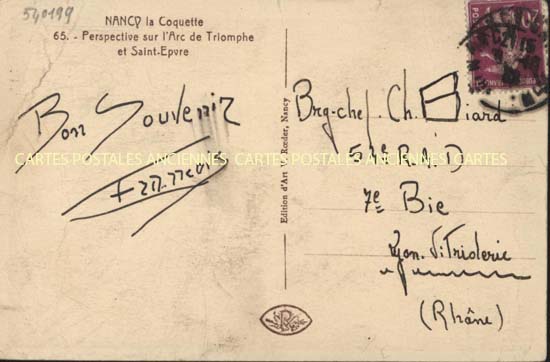 540199
NANCY la Coquette
65. - Perspective sur l'Arc de Triomphe
et Saint-Epvre
Bon Souvenir
CARTES POSTALES ANCIENNES CARTES POSTALES ANCIENNES
Edition d'Art Vr Rœder, Nancy
Brg-chef. Ch. Biard
7e Bie
Lyon.
(Rhône)